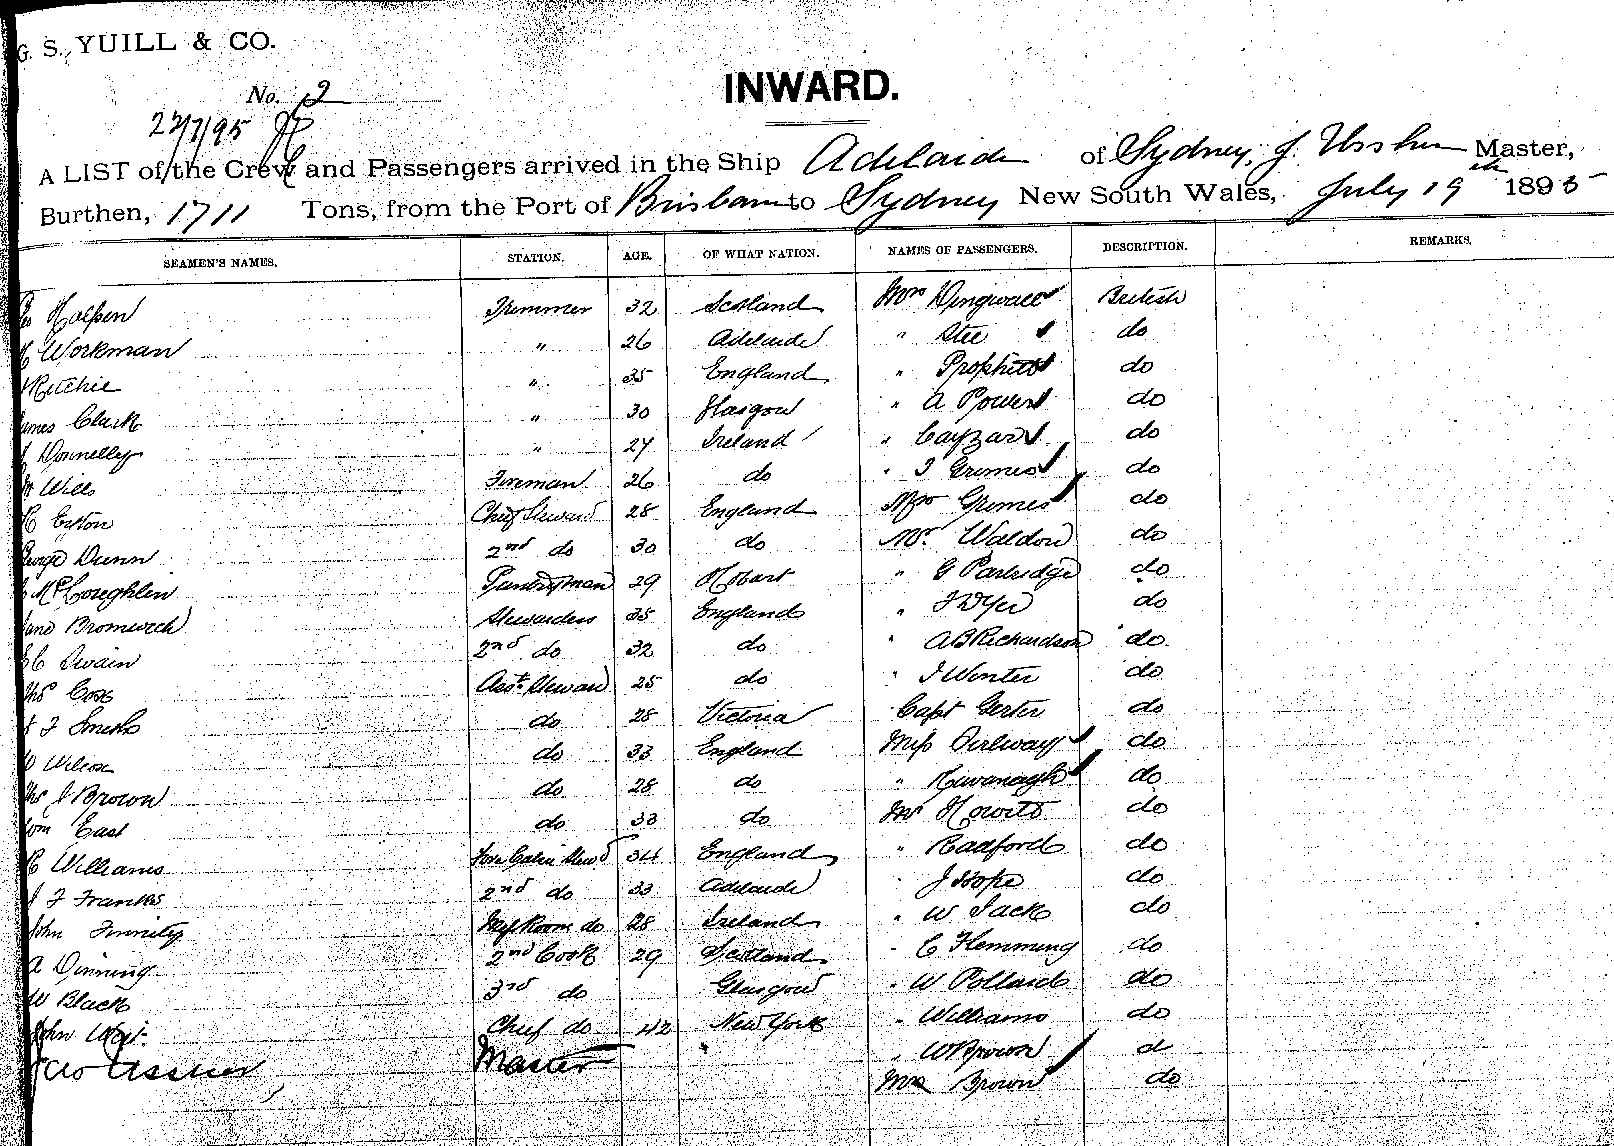 G. S. YUILL & CO.
INWARD.
No. 2
22/7/95
A LIST of the Crew and Passengers arrived in the Ship Adelaide of Sydney, J. Ussher Master,
Burthen, 1711 Tons, from the Port of Brisbane to Sydney New South Wales, July 19th 1895
SEAMEN'S NAMES. STATION. AGE. OF WHAT NATION. NAMES OF PASSENGERS. DESCRIPTION. REMARKS.
Halpen Trimmer 32 Scotland Mrs Dingwall British
Workman " 26 Adelaide " Stee do
Ritchie " 35 England " do
James Clark " 30 Glasgow " A Power do
Donnelly " 27 Ireland " Cayzar do
W Wills Fireman 26 do " T Grimes do
Exton Chief Steward 28 England Mrs Grimes do
George Dunn 2nd do 30 do Mr. Waldon do
McLoughlin Pantryman 29 Hobart " G Partridge do
Jane Bromwich Stewardess 35 England " J Dyer do
Swain 2nd do 32 do " A B Richardson do
Thos Cox Asst. Steward 25 do " J Winter do
F Smith do 28 Victoria Capt Gerter do
W Wilcox do 33 England Miss do
Thos J Brown do 28 do " Kavanagh do
Wm East do 33 do Mr Howitt do
Williams Fore Cabin Stewd 34 England " Radford do
J F Franks 2nd do 33 Adelaide " J Hope do
John Finnity Mess Room do 28 Ireland " W Jack do
A Dinning 2nd Cook 29 Scotland " C Hemming do
W Black 3rd do Glasgow " W Pollard do
John Chief do 42 New York " Williams do
Jas Ussher Master " " W Brown d
Mrs Brown do